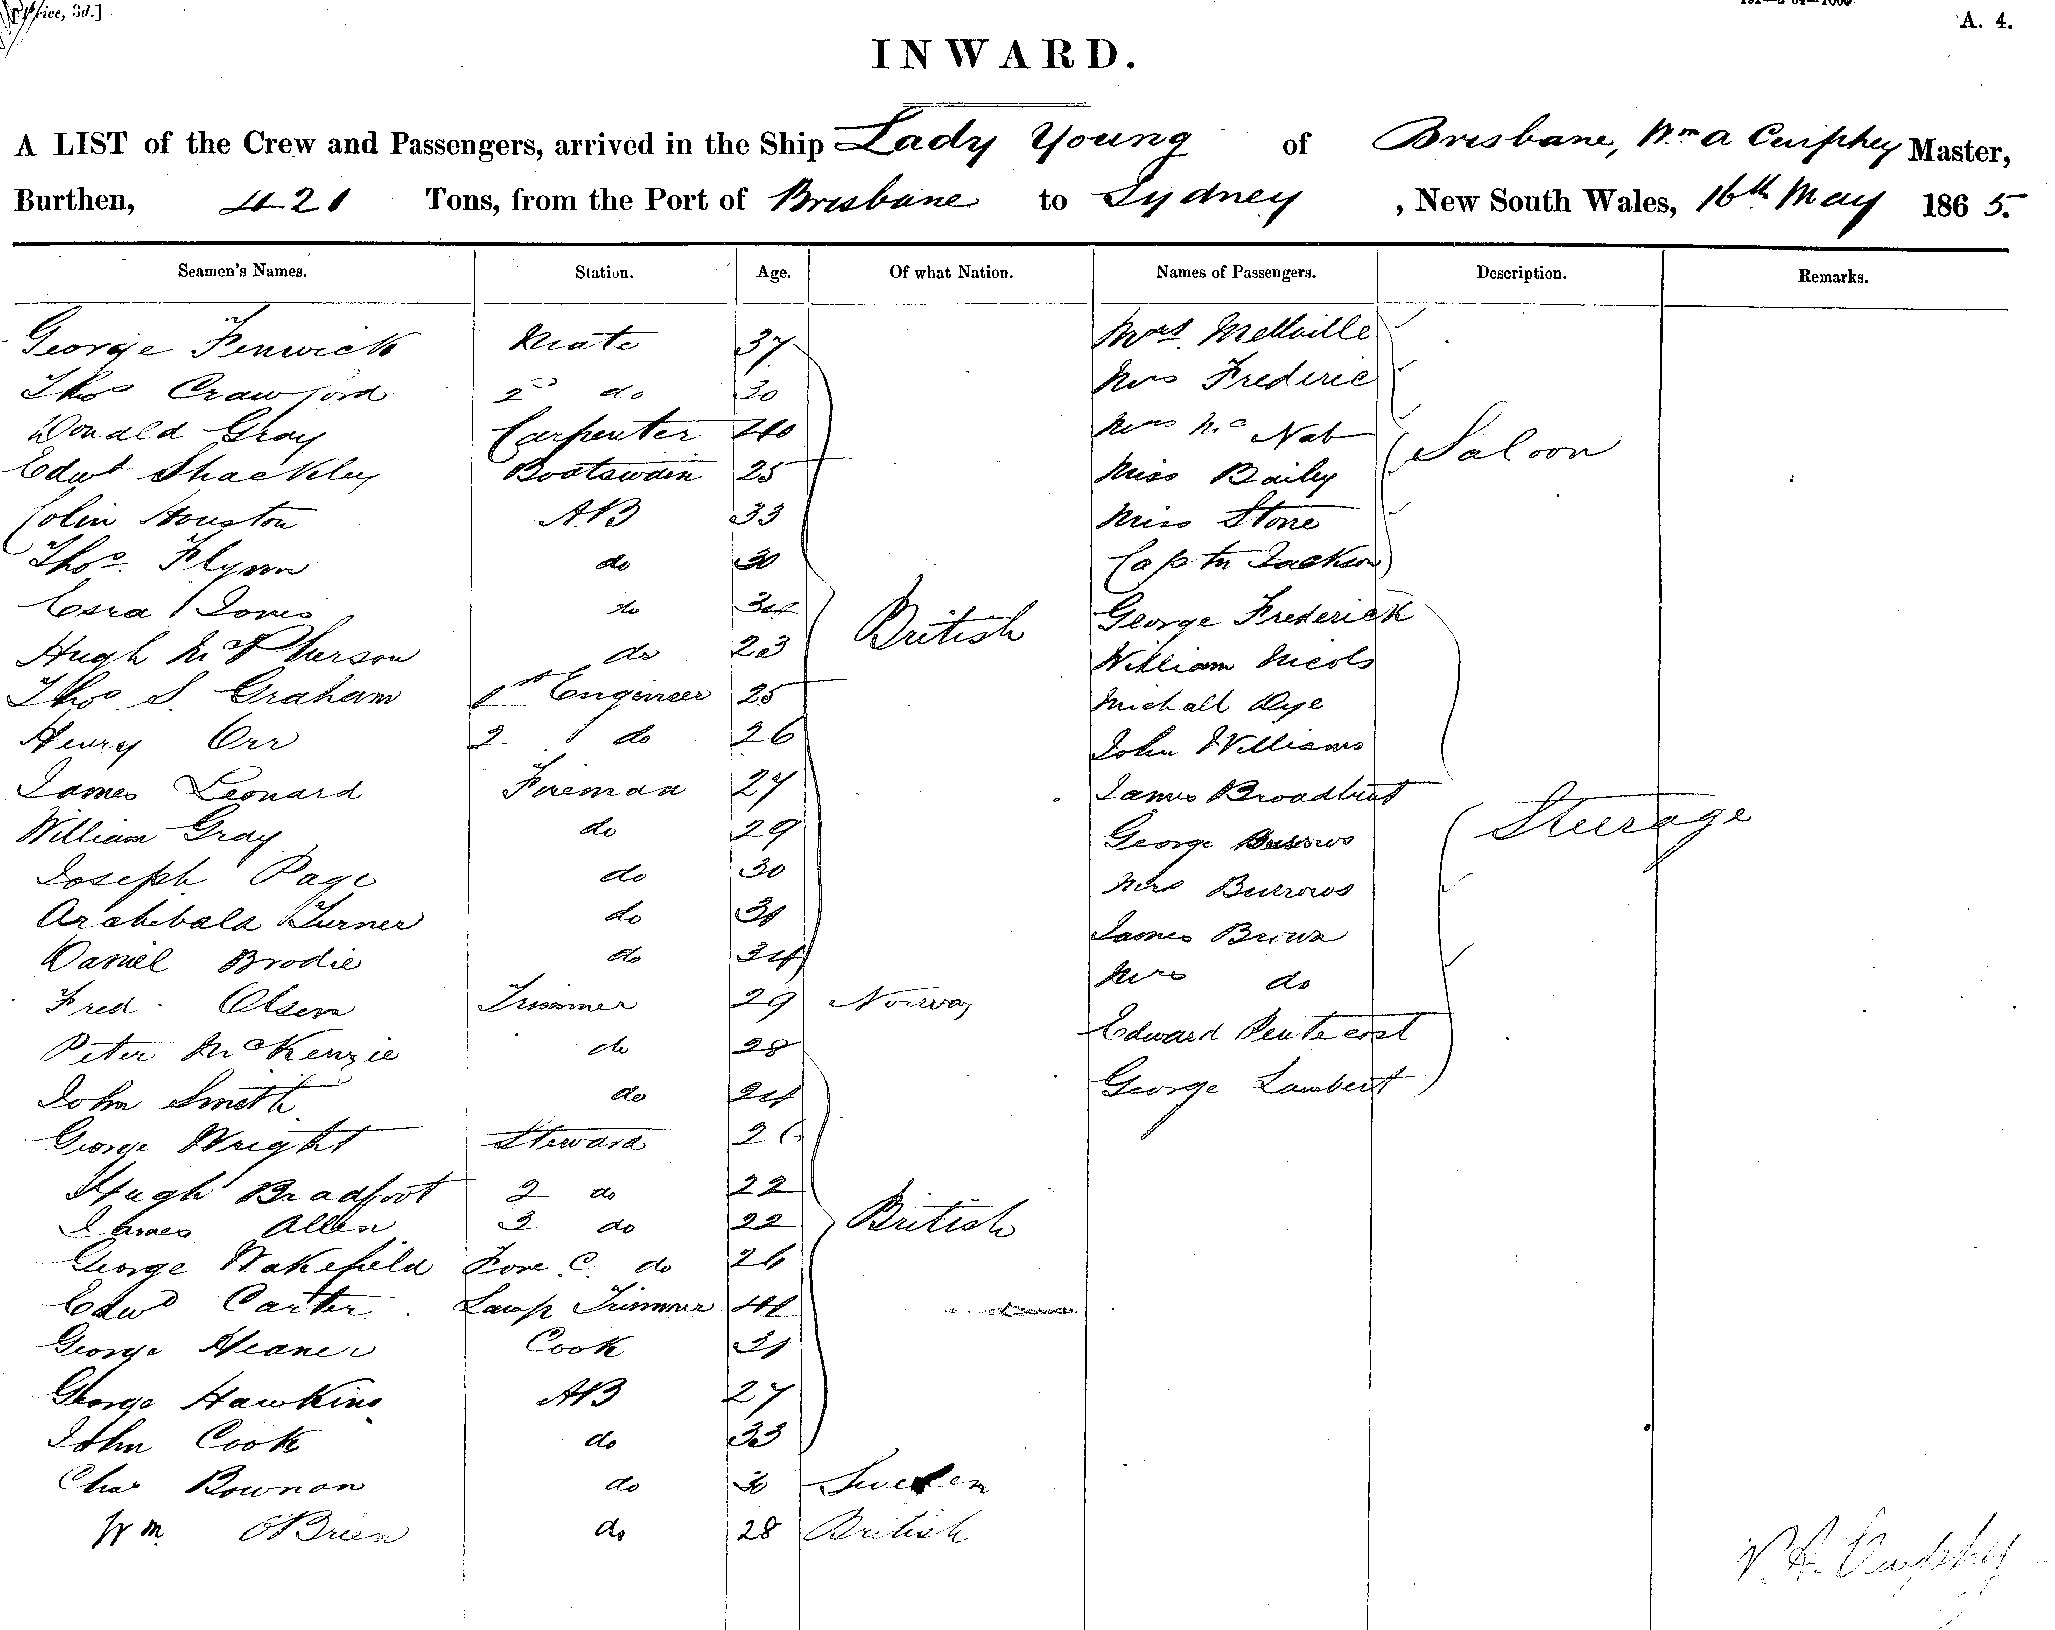 Office, 3d.]
A. 4.
INWARD.
A LIST of the Crew and Passengers, arrived in the Ship Lady Young of Brisbane, Wm A Curphey Master,
Burthen, 421 Tons, from the Port of Brisbane to Sydney, New South Wales, 16th May 1865.
Seamen's Names. Station. Age. Of what Nation. Names of Passengers. Description. Remarks.
George Fenwick Mate 37 Mrs. Mellville
Thos Crawford 2nd do 30 Mrs Frederic
Donald Gray Carpenter 40 Mrs McNab Saloon
Edwd Shackley Boatswain 25 Miss Bailey
Colin Houston AB 33 Miss Stone
Thos. Flynn do 30 Captn Jackson
Esra Jones do 34 British George Frederick
Hugh McPherson do 23 William Nicols
Thos S. Graham 1st Engineer 25 Michall Dye
Henry Orr 2 do 26 John Williams
James Leonard Fireman 27 James Broadbent
William Gray do 29 George Burrows Steerage
Joseph Page do 30 Mrs Burrows
Archibald Turner do 31 James Brown
Daniel Brodie do 34 Mrs do
Fred Olsen Trimmer 29 Norway Edward Pentecost
Peter McKenzie do 28 George Lambert
John Smith do 24
George Wright Steward 26
Hugh Bradfoot 2 do 22
James Allen 3 do 22 British
George Wakefield Fore C. do 26
Edwd Carter Lamp Trimmer 41
George Cook 31
George Hawkins AB 27
John Cook do 33
Chas Bownan do 30 Sweden
Wm. OBrien do 28 British
W. A. Curphey